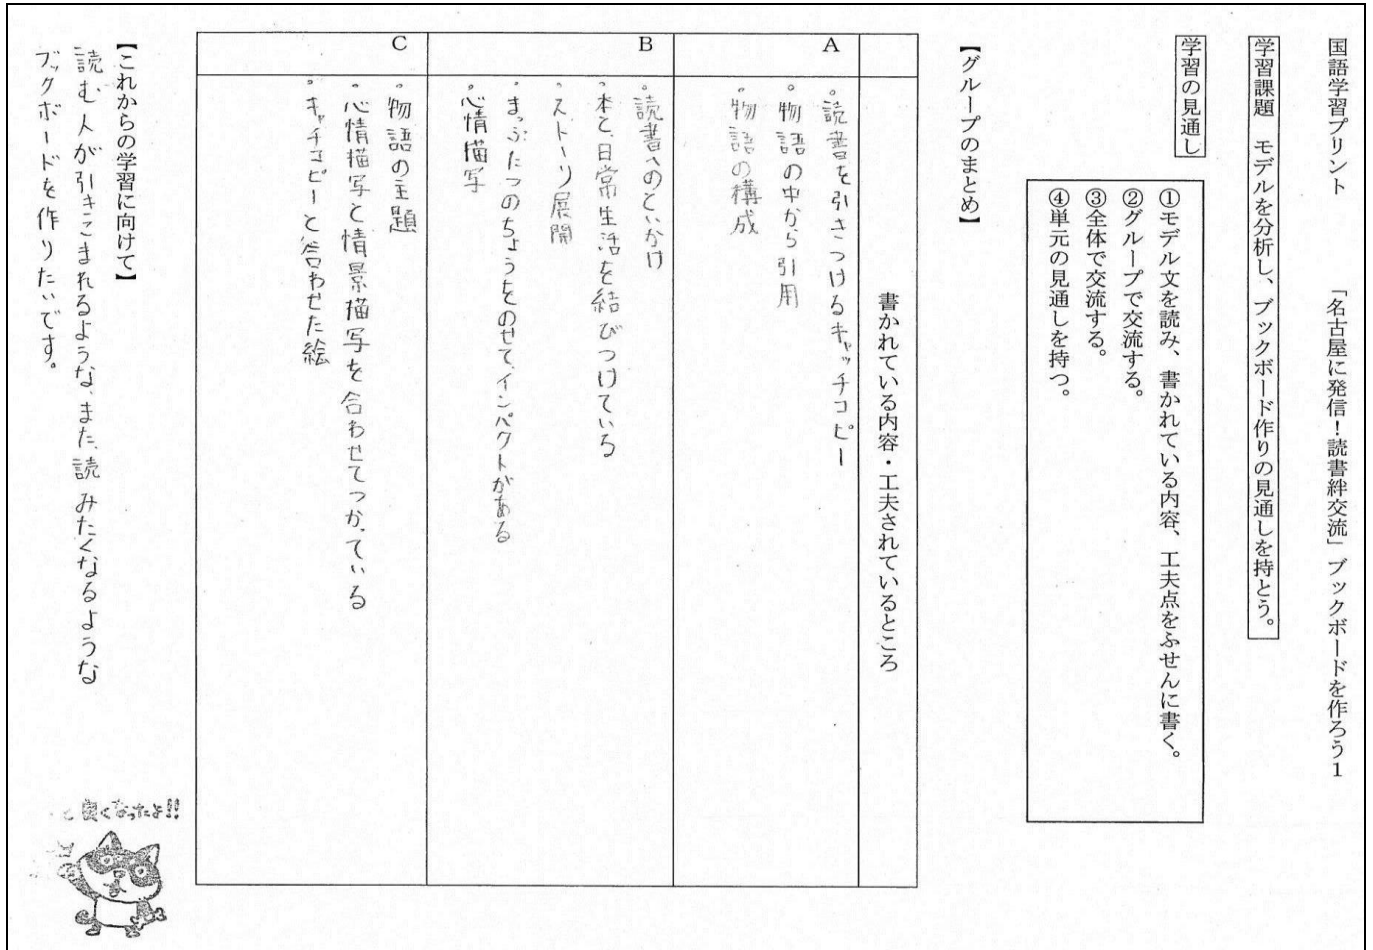 国語学習プリント 「名古屋に発信!読書絆交流」ブックボードを作ろう1
学習課題 モデルを分析し、ブックボード作りの見通しを持とう。
学習の見通し
①モデル文を読み、書かれている内容、工夫点をふせんに書く。
②グループで交流する。
③全体で交流する。
④単元の見通しを持つ。
【グループのまとめ】
書かれている内容・工夫されているところ
A
・読書を引きつけるキャッチコピー
・物語の中から引用
・物語の構成
B
・読書へのといかけ
・本と、日常生活を結びつけている
・ストーリ展開
・まっぷたつのちょうをのせて、インパクトがある
・心情描写
C
・物語の主題
・心情描写と情景描写を合わせてつかっている
・キャチコピーと合わせた絵
【これからの学習に向けて】
読む人が引きこまれるような、また、読みたくなるような
ブックボードを作りたいです。
と良くなったよ!!